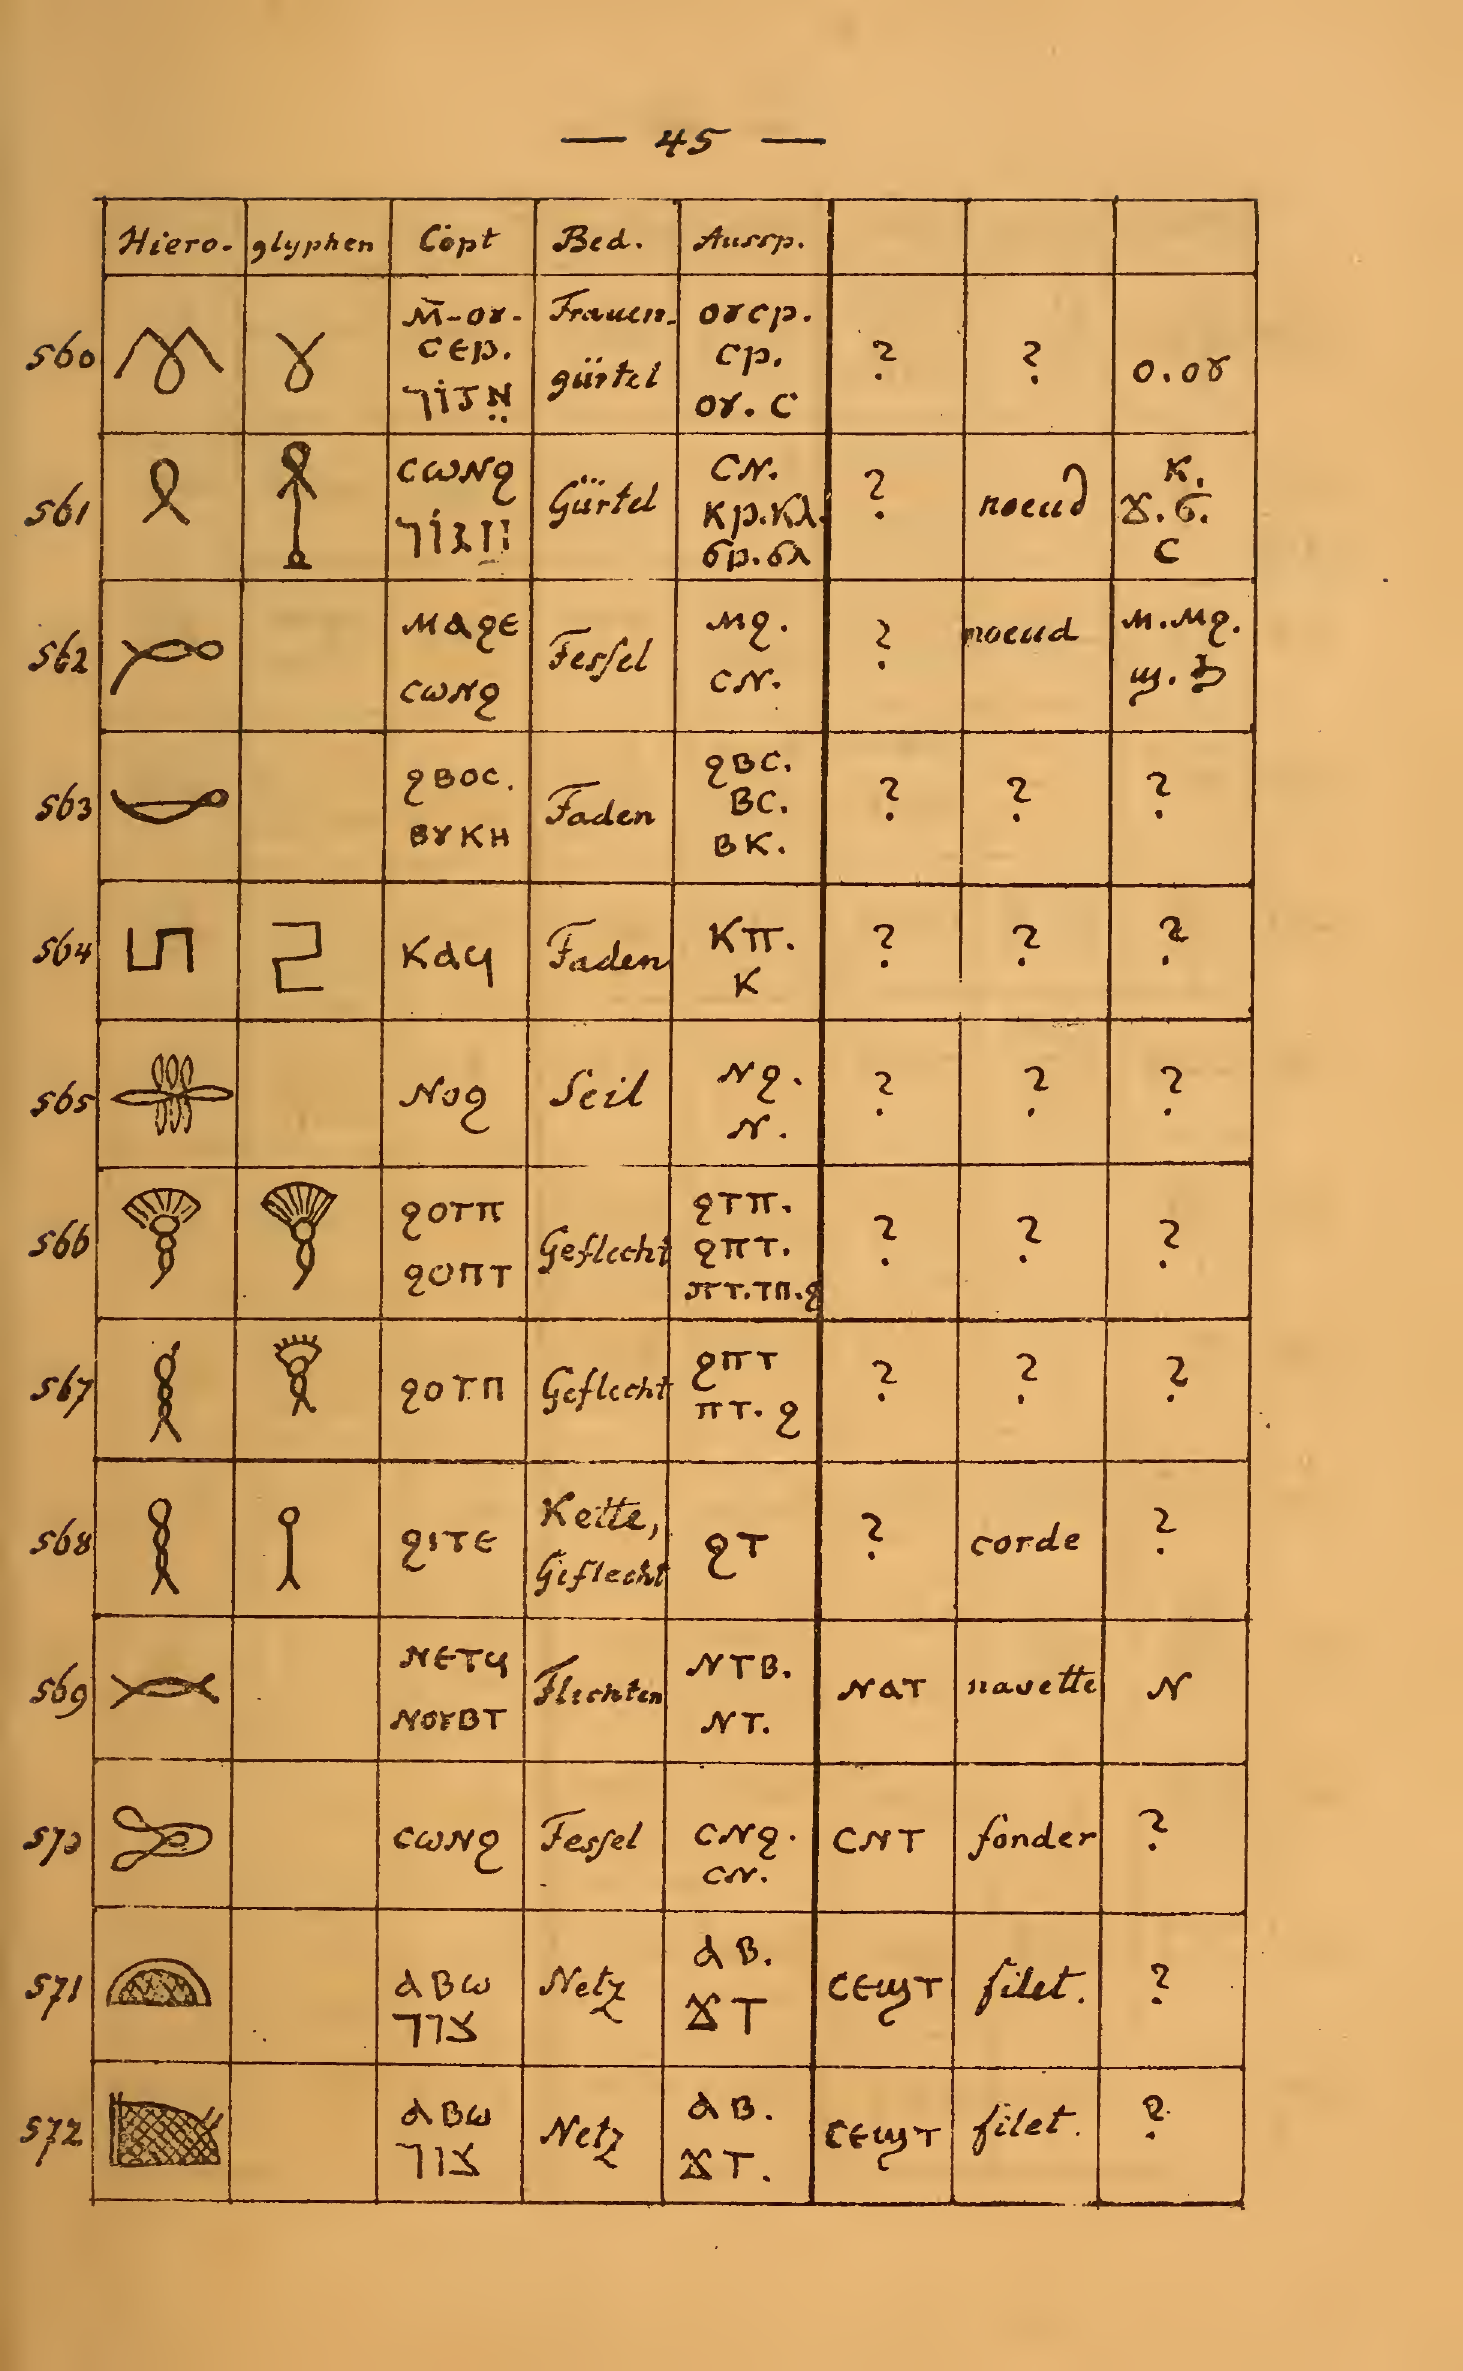 — 45 —
Hiero- glyphen Copt Bed. Aussp.
560 ⲙ̄-ⲟⲩ- ⲥⲉⲣ. אֵזוֹר Frauen- gürtel ⲟⲩⲥⲣ. ⲥⲣ. ⲟⲩ. ⲥ ? ? ⲟ. ⲟⲩ
561 ⲥⲱⲛϩ חגוֹר Gürtel ⲥⲛ. ⲕⲣ. ⲕⲗ. ϭⲣ. ϭⲗ ? noeud ⲕ. ϭ. ⲥ
562 ⲙⲁϩⲉ ⲥⲱⲛϩ Fessel ⲙϩ. ⲥⲛ. ? noeud ⲙ. ⲙϩ. ϣ.
563 ϩⲃⲟⲥ. ⲃⲩⲕⲏ Faden ϩⲃⲥ. ⲃⲥ. ⲃⲕ. ? ? ?
564 ⲕⲁϥ Faden ⲕⲡ. ⲕ ? ? ?
565 ⲛⲟϩ Seil ⲛϩ. ⲛ. ? ? ?
566 ϩⲟⲧⲡ ϩⲟⲡⲧ Geflecht ϩⲧⲡ. ϩⲡⲧ. ⲡⲧ. ⲧⲡ. ϩ ? ? ?
567 ϩⲟⲧⲡ Geflecht ϩⲡⲧ ⲡⲧ. ϩ ? ? ?
568 ϩⲓⲧⲉ Kette, Geflecht ϩⲧ ? corde ?
569 ⲛⲉⲧϥ ⲛⲟⲩⲃⲧ Flechten ⲛⲧⲃ. ⲛⲧ. ⲛⲁⲧ navette ⲛ
570 ⲥⲱⲛϩ Fessel ⲥⲛϩ. ⲥⲛ. ⲥⲛⲧ fonder ?
571 ⲁⲃⲱ צוד Netz ⲁⲃ. ⲥⲉϣⲧ filet. ?
572 ⲁⲃⲱ צוד Netz ⲁⲃ. ⲥⲉϣⲧ filet. ?